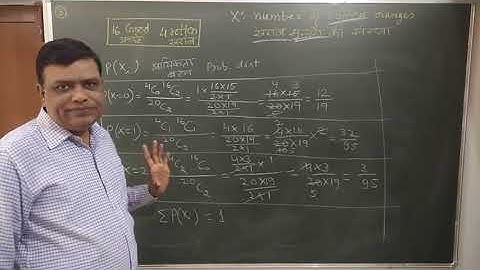 ②
16 उत्तम संतरे
4 खराब संतरे
X: number of oranges
संतरों की संख्या
P(X) प्रायिकता बंटन Prob. dist
P(X=0) = ⁴C₀ ¹⁶C₂ / ²⁰C₂ = 1 × (16×15 / 2×1) / (20×19 / 2×1) = 16×15 / 20×19 = 12/19
P(X=1) = ⁴C₁ ¹⁶C₁ / ²⁰C₂ = 4×16 / (20×19 / 2×1) = 4×16 / 20×19 × 2 = 32/95
X=2 ⁴C₂ ¹⁶C₀ / ²⁰C₂ = (4×3 / 2×1) × 1 / (20×19 / 2×1) = 4×3 / 20×19 = 3/95
ΣP(Xᵢ) = 1